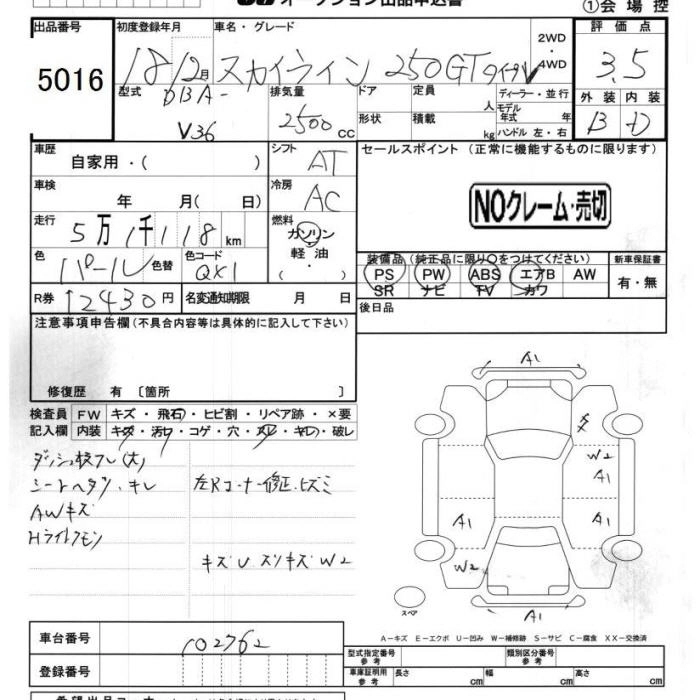 オークション出品申込書
①会場控
出品番号 初度登録年月 車名・グレード 評価点
5016
18/12月 スカイライン 250GT タイプV
2WD
4WD
3.5
型式 排気量 ドア 定員 ディーラー・並行
DBA-
V36
2500cc
人
モデル年式 年
外装 内装
B D
形状 積載 kg ハンドル 左・右
車歴 シフト セールスポイント (正常に機能するものに限ります)
自家用・( ) AT
車検 冷房
年 月( 日) AC
NOクレーム・売切
走行 燃料
5万1千118km
ガソリン
軽油
・
色 色替 カラーコード
パール QX1
装備品(純正品に限り○をつけてください) 新車保証書
PS PW ABS エアB AW
SR ナビ TV カワ
有・無
R券 12430円 名変通知期限 月 日
後日品
注意事項申告欄(不具合内容等は具体的に記入して下さい)
修復歴 有 〔箇所 〕
検査員 FW キズ・飛石・ヒビ割・リペア跡・×要
記入欄 内装 キズ・汚れ・コゲ・穴・スレ・キレ・破レ
ダッシュ
シートヘタリ・キレ
左Rコーナー修正・ヒズミ
AWキズ
Hライト
キズ U スリキズ W2
A1
W2
A1
A1
A1
W2
A1
スペア
A-キズ E-エクボ U-凹み W-補修跡 S-サビ C-腐食 XX-交換済
車台番号 102762
登録番号
型式指定番号 参考 類別区分番号 参考
車庫証明用 参考 長さ cm 幅 cm 高さ cm